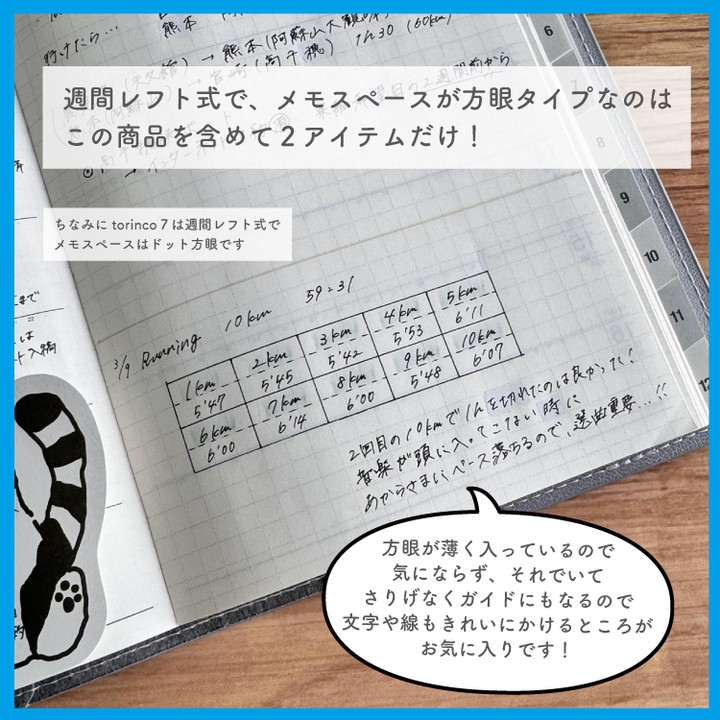 行けたら…
熊本
熊本(阿蘇山大観
→ 宮崎(高千穂) 1h30 (60km)
週間レフト式で、メモスペースが方眼タイプなのは
この商品を含めて２アイテムだけ！
ちなみに torinco 7 は週間レフト式で
メモスペースはドット方眼です
6
7
8
9
10
11
12
3/9 Running 10km 59:31
1km 2km 3km 4km 5km
5'47 5'45 5'42 5'53 6'11
6km 7km 8km 9km 10km
6'00 6'14 6'00 5'48 6'07
2回目の10kmで1hを切れたのは良かった！
音楽が頭に入ってこない時に
あからさまにペース落ちるので、選曲重要…!!
方眼が薄く入っているので
気にならず、それでいて
さりげなくガイドにもなるので
文字や線もきれいにかけるところが
お気に入りです！